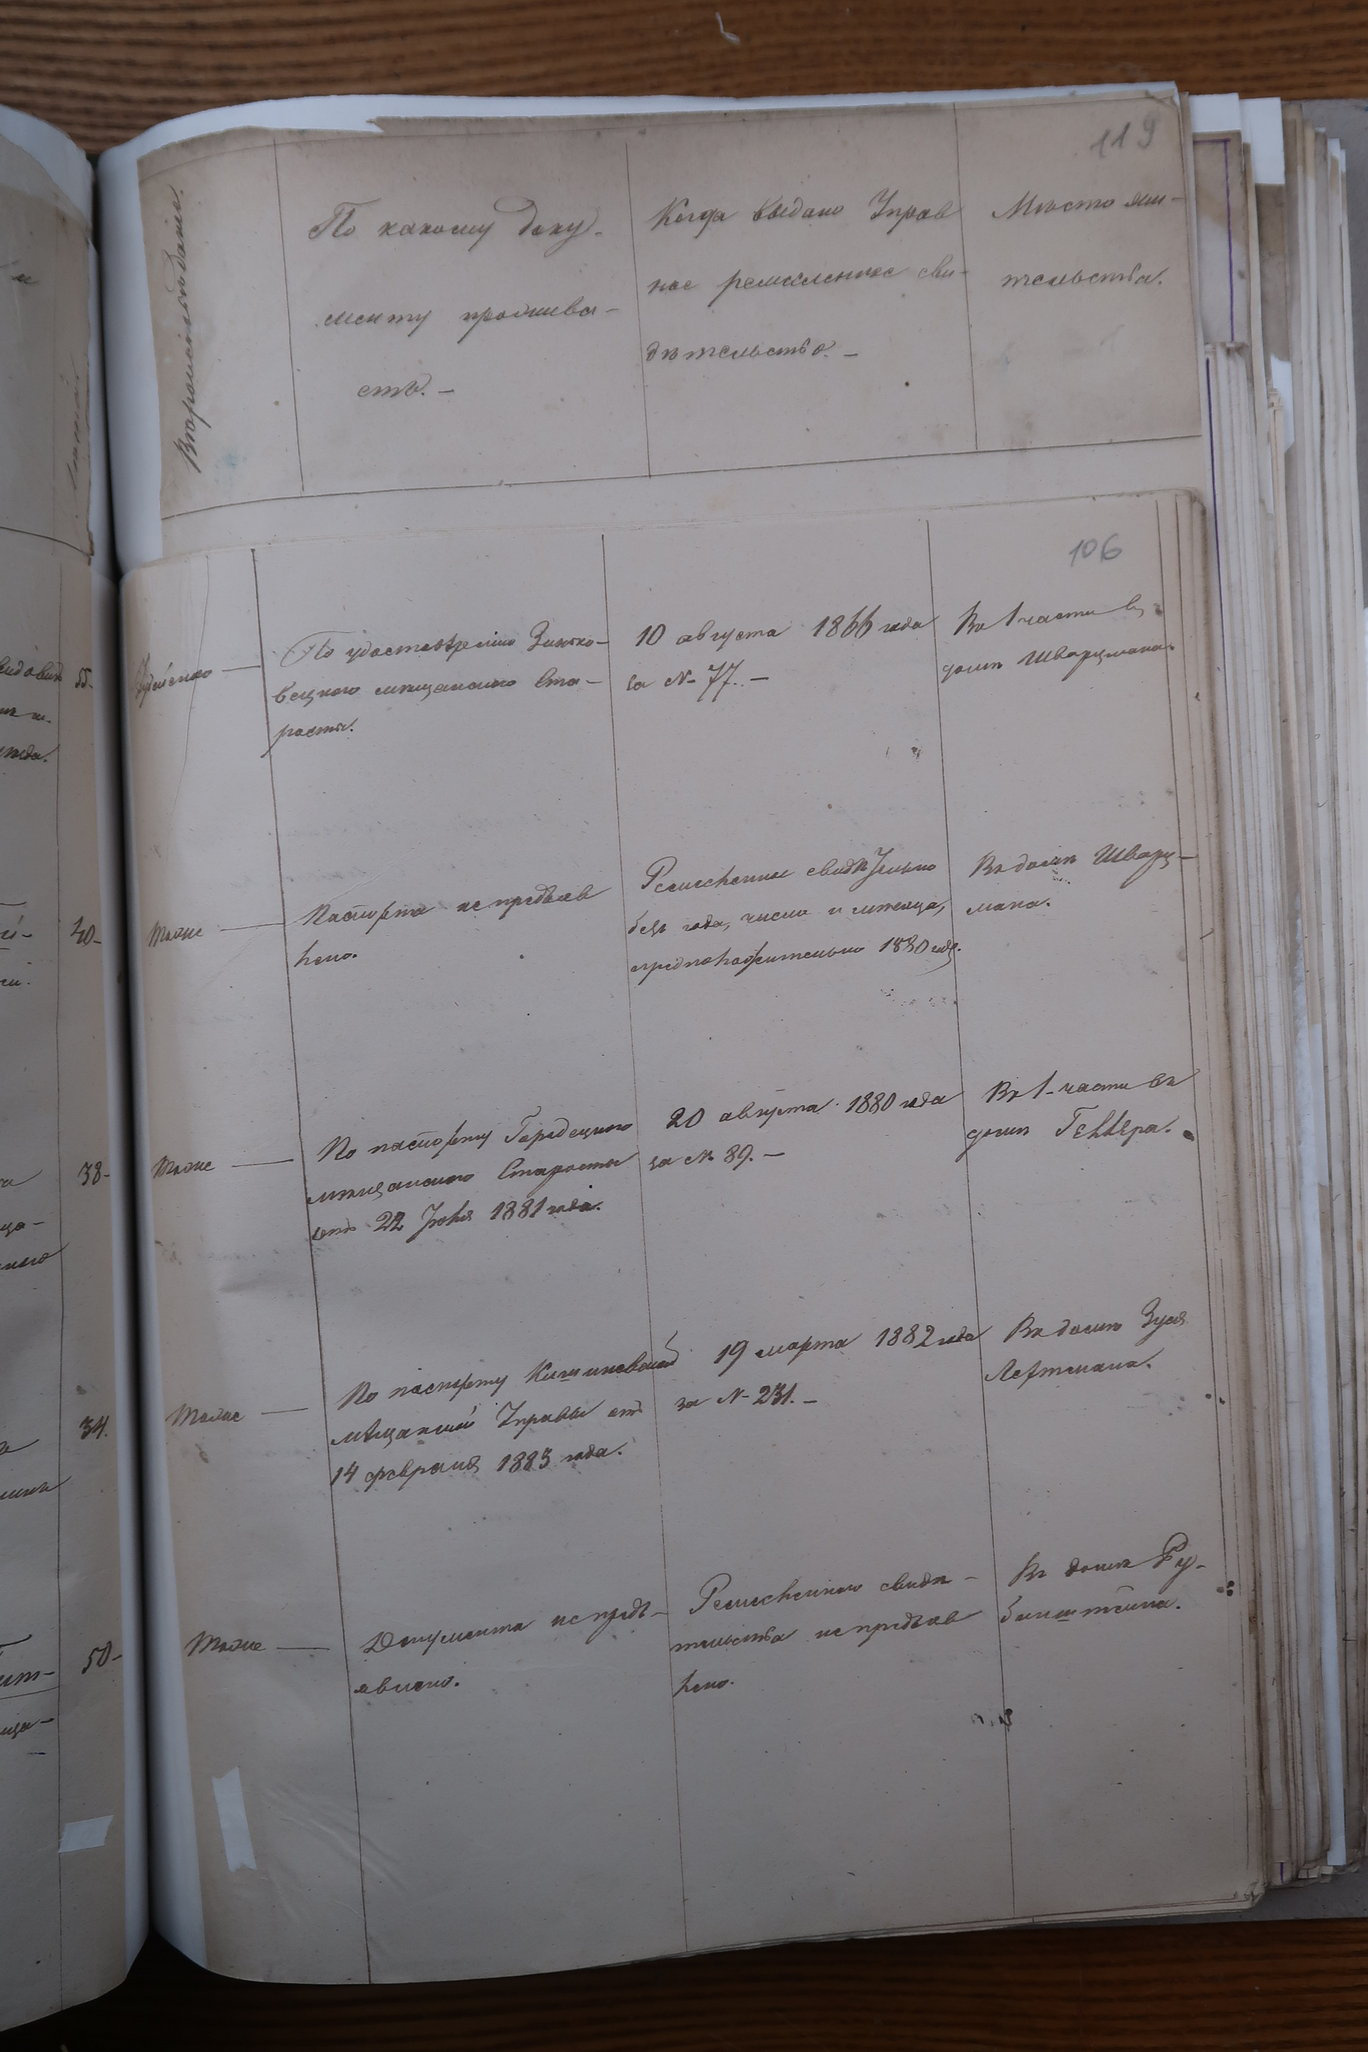 119
Вѣроисповѣданіе.
По какому доку-
менту прожива-
етъ. –
Когда выдано Управ
ное ремесленное сви-
дѣтельство. –
Мѣсто жи-
тельства.
106
55-
Іудейское
По удостовѣренію Зинько-
вецкаго мѣщанскаго Ста-
росты.
10 августа 1866 года
за № 77. –
Въ 1 части въ
домѣ Шварцмана.
40-
тоже
Паспорта не предъяв
лено.
Ремесленное свидѣтельство
безъ года, числа и мѣсяца,
предположительно 1880 года.
Въ домѣ Шварц-
мана.
38-
тоже
По паспорту Городецкаго
мѣщанскаго Старосты
отъ 22 Іюня 1881 года.
20 августа 1880 года
за № 89. –
Въ 1-части въ
домѣ Геллера.
34.
тоже
По паспорту Кишиневской
мѣщанской Управы отъ
14 февраля 1883 года.
19 марта 1882 года
за № 231. –
Въ домѣ Зуся
Лехтмана.
50-
тоже
Документа не предъ-
явлено.
Ремесленнаго свидѣ-
тельства не предъяв
лено.
Въ домѣ Ру-
бинштейна.